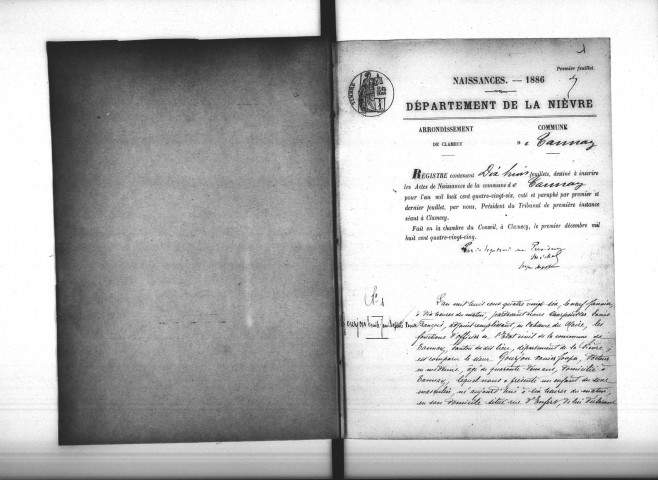 1
Premier feuillet.
NAISSANCES. — 1886
DÉPARTEMENT DE LA NIÈVRE
ARRONDISSEMENT
DE CLAMECY
COMMUNE
de Tannay
REGISTRE contenant Dix huit feuillets, destiné à inscrire
les Actes de Naissance de la commune de Tannay
pour l'an mil huit cent quatre-vingt-six, coté et paraphé par premier et
dernier feuillet, par nous, Président du Tribunal de première instance
séant à Clamecy.
Fait en la chambre du Conseil, à Clamecy, le premier décembre mil
huit cent quatre-vingt-cinq.
Président
N° 1
L'an mil huit cent quatre vingt six, le neuf janvier
à dix heures du matin, pardevant nous Charpentier Louis
François, adjoint remplissant, en l'absence du Maire, les
fonctions d'officier de l'Etat civil de la commune de
Tannay, canton du dit lieu, département de la Nièvre,
est comparu le sieur Gourjon docteur
en médecine, âgé de quarante ans, domicilié à
Tannay, lequel nous a présenté un enfant du sexe
masculin né aujourd'hui à six heures du matin,
en son domicile situé rue d'Enfert, de lui déclarant